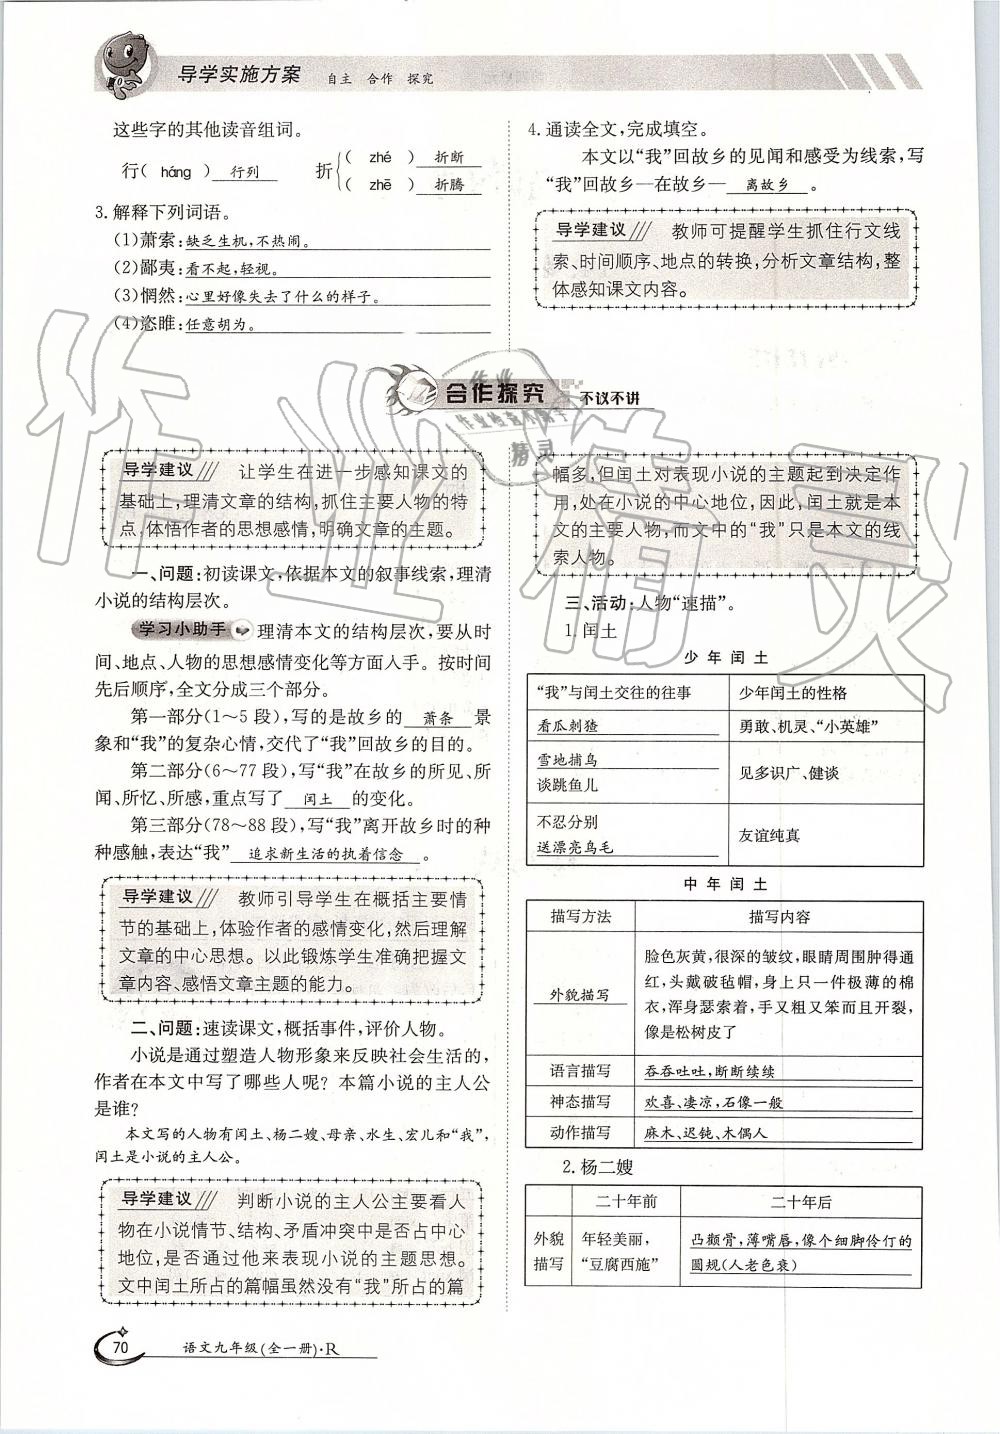 导学实施方案 自主 合作 探究
这些字的其他读音组词。
行( háng ) 行列 折 ( zhé ) 折断
( zhē ) 折腾
3. 解释下列词语。
(1)萧索:缺乏生机,不热闹。
(2)鄙夷:看不起,轻视。
(3)惘然:心里好像失去了什么的样子。
(4)恣睢:任意胡为。
4. 通读全文,完成填空。
本文以“我”回故乡的见闻和感受为线索,写
“我”回故乡—在故乡— 离故乡 。
导学建议 教师可提醒学生抓住行文线
索、时间顺序、地点的转换,分析文章结构,整
体感知课文内容。
合作探究 不议不讲
导学建议 让学生在进一步感知课文的
基础上,理清文章的结构,抓住主要人物的特
点,体悟作者的思想感情,明确文章的主题。
一、问题:初读课文,依据本文的叙事线索,理清
小说的结构层次。
学习小助手 理清本文的结构层次,要从时
间、地点、人物的思想感情变化等方面入手。按时间
先后顺序,全文分成三个部分。
第一部分(1～5 段),写的是故乡的 萧条 景
象和“我”的复杂心情,交代了“我”回故乡的目的。
第二部分(6～77 段),写“我”在故乡的所见、所
闻、所忆、所感,重点写了 闰土 的变化。
第三部分(78～88 段),写“我”离开故乡时的种
种感触,表达“我” 追求新生活的执着信念 。
导学建议 教师引导学生在概括主要情
节的基础上,体验作者的感情变化,然后理解
文章的中心思想。以此锻炼学生准确把握文
章内容、感悟文章主题的能力。
二、问题:速读课文,概括事件,评价人物。
小说是通过塑造人物形象来反映社会生活的,
作者在本文中写了哪些人呢? 本篇小说的主人公
是谁?
本文写的人物有闰土、杨二嫂、母亲、水生、宏儿和“我”,
闰土是小说的主人公。
导学建议 判断小说的主人公主要看人
物在小说情节、结构、矛盾冲突中是否占中心
地位,是否通过他来表现小说的主题思想。
文中闰土所占的篇幅虽然没有“我”所占的篇
幅多,但闰土对表现小说的主题起到决定作
用,处在小说的中心地位,因此,闰土就是本
文的主要人物,而文中的“我”只是本文的线
索人物。
三、活动:人物“速描”。
1. 闰土
少年闰土
“我”与闰土交往的往事 少年闰土的性格
看瓜刺猹 勇敢、机灵、“小英雄”
雪地捕鸟
谈跳鱼儿 见多识广、健谈
不忍分别
送漂亮鸟毛 友谊纯真
中年闰土
描写方法 描写内容
外貌描写 脸色灰黄,很深的皱纹,眼睛周围肿得通
红,头戴破毡帽,身上只一件极薄的棉
衣,浑身瑟索着,手又粗又笨而且开裂,
像是松树皮了
语言描写 吞吞吐吐,断断续续
神态描写 欢喜、凄凉,石像一般
动作描写 麻木、迟钝、木偶人
2. 杨二嫂
二十年前 二十年后
外貌描写 年轻美丽,“豆腐西施” 凸颧骨,薄嘴唇,像个细脚伶仃的
圆规(人老色衰)
70 语文九年级(全一册)·R
作业精灵
作业
作业检查小助手
精灵